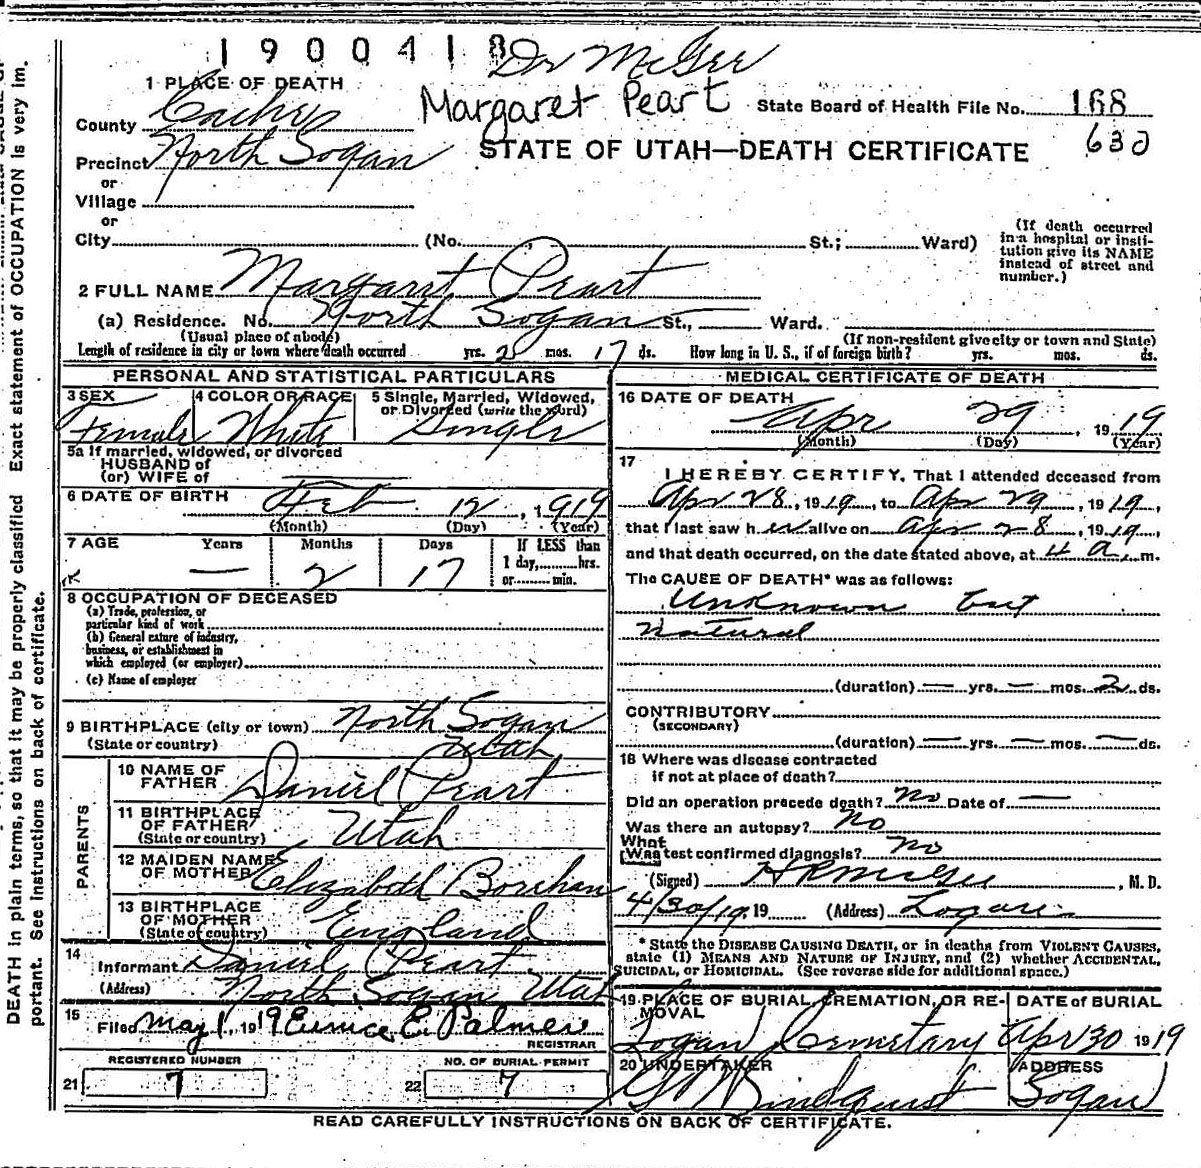 1900418
Dr McGee
Margaret Peart
State Board of Health File No. 168
630
1 PLACE OF DEATH
County Cache
Precinct North Logan
STATE OF UTAH—DEATH CERTIFICATE
or
Village
or
City (No. St.; Ward)
(If death occurred
in a hospital or insti-
tution give its NAME
instead of street and
number.)
2 FULL NAME Margaret Peart
(a) Residence. No. North Logan St., Ward.
(Usual place of abode) (If non-resident give city or town and State)
Length of residence in city or town where death occurred yrs. 2 mos. 17 ds. How long in U. S., if of foreign birth? yrs. mos. ds.
PERSONAL AND STATISTICAL PARTICULARS
3 SEX 4 COLOR OR RACE 5 Single, Married, Widowed,
or Divorced (write the word)
Female White Single
5a If married, widowed, or divorced
HUSBAND of
(or) WIFE of —
6 DATE OF BIRTH Feb 12, 1919
(Month) (Day) (Year)
7 AGE Years Months Days If LESS than
1 day, hrs.
or min.
— 2 17
8 OCCUPATION OF DECEASED
(a) Trade, profession, or
particular kind of work
(b) General nature of industry,
business, or establishment in
which employed (or employer)
(c) Name of employer
9 BIRTHPLACE (city or town) North Logan
(State or country) Utah
PARENTS
10 NAME OF
FATHER Daniel Peart
11 BIRTHPLACE
OF FATHER Utah
(State or country)
12 MAIDEN NAME
OF MOTHER Elizabeth
13 BIRTHPLACE
OF MOTHER England
(State or country)
14
Informant Daniel Peart
(Address) North Logan Utah
15
Filed May 1, 1919 Eunice E. Palmer
REGISTRAR
REGISTERED NUMBER NO. OF BURIAL PERMIT
21 7 22 7
MEDICAL CERTIFICATE OF DEATH
16 DATE OF DEATH
Apr 29, 1919
(Month) (Day) (Year)
17
I HEREBY CERTIFY, That I attended deceased from
Apr 28, 1919, to Apr 29, 1919,
that I last saw her alive on Apr 28, 1919,
and that death occurred, on the date stated above, at 4 a. m.
The CAUSE OF DEATH* was as follows:
Unknown but
Natural
(duration) — yrs. — mos. 2 ds.
CONTRIBUTORY
(SECONDARY)
(duration) — yrs. — mos. — ds.
18 Where was disease contracted
if not at place of death?
Did an operation precede death? No Date of —
Was there an autopsy? No
What
Was test confirmed diagnosis? No
(Signed) H R McGee, M. D.
4/30/19 19 (Address) Logan
* State the DISEASE CAUSING DEATH, or in deaths from VIOLENT CAUSES,
state (1) MEANS AND NATURE OF INJURY, and (2) whether ACCIDENTAL,
SUICIDAL, or HOMICIDAL. (See reverse side for additional space.)
19 PLACE OF BURIAL, CREMATION, OR RE- DATE of BURIAL
MOVAL
Logan Cemetary Apr 30 1919
20 UNDERTAKER ADDRESS
Lindquist Logan
READ CAREFULLY INSTRUCTIONS ON BACK OF CERTIFICATE.
DEATH in plain terms, so that it may be properly classified Exact statement of OCCUPATION is very im-
portant. See instructions on back of certificate.